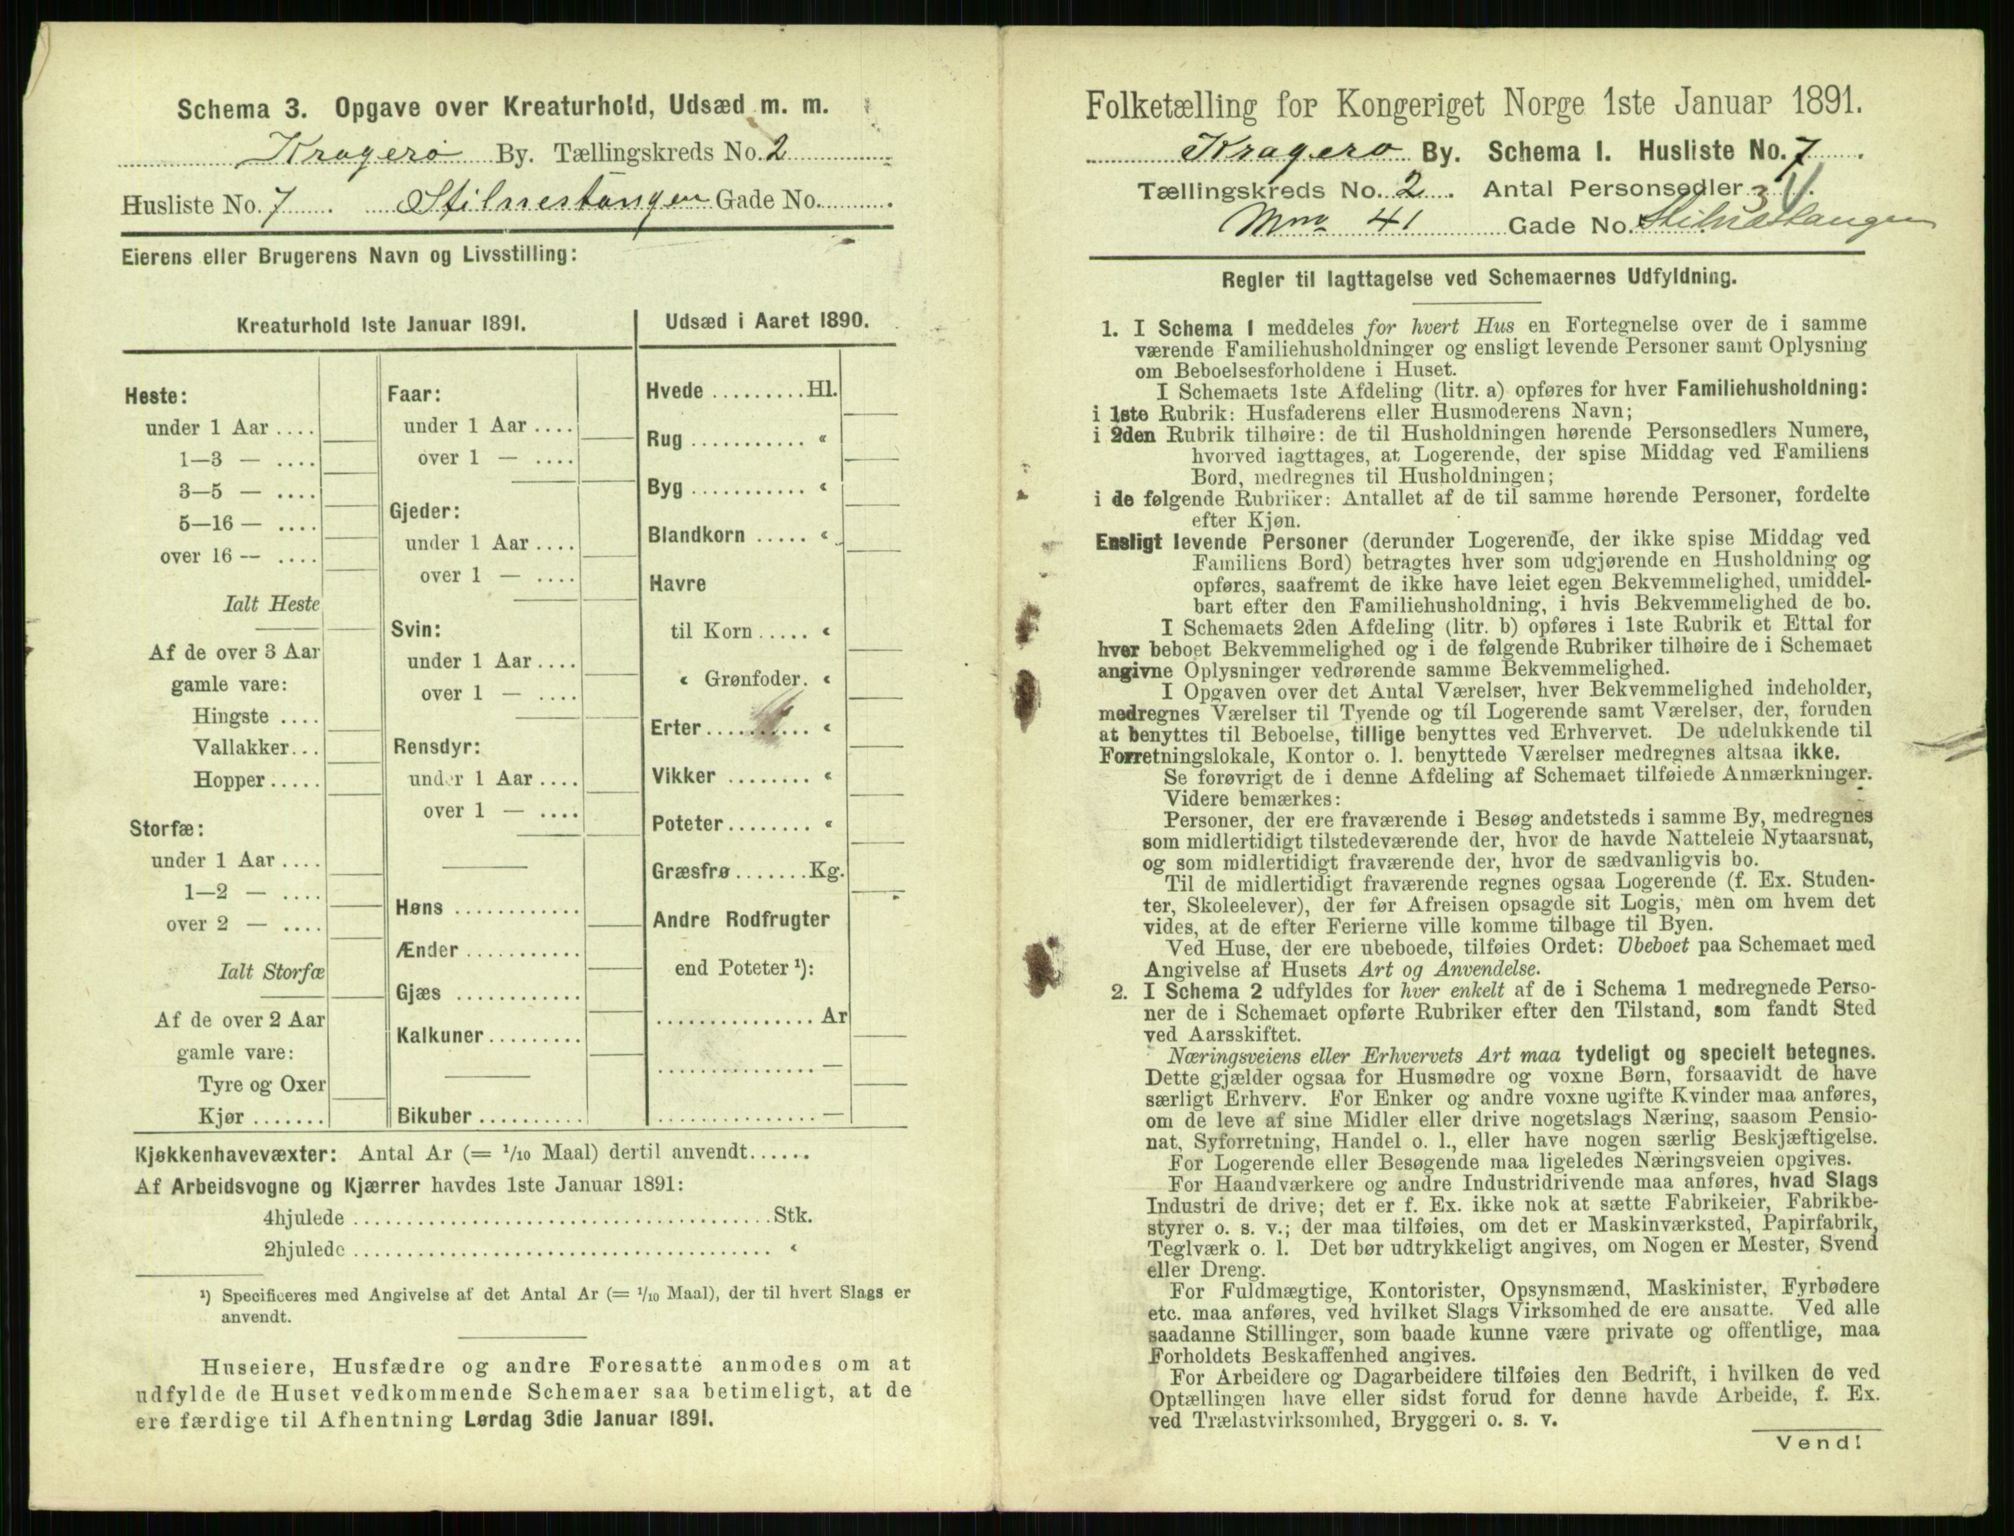 Schema 3. Opgave over Kreaturhold, Udsæd m. m.
Kragerø By. Tællingskreds No. 2
Husliste No. 7 Stilnestangen Gade No.
Eierens eller Brugerens Navn og Livsstilling:
Kreaturhold 1ste Januar 1891.
Heste:
under 1 Aar ....
1—3 — ....
3—5 — ....
5—16 — ....
over 16 — ....
Ialt Heste
Af de over 3 Aar
gamle vare:
Hingste ....
Vallakker...
Hopper.....
Storfæ:
under 1 Aar ....
1—2 — ....
over 2 — ....
Ialt Storfæ
Af de over 2 Aar
gamle vare:
Tyre og Oxer
Kjør .......
Faar:
under 1 Aar ....
over 1 — ....
Gjeder:
under 1 Aar ....
over 1 — ....
Svin:
under 1 Aar ....
over 1 — ....
Rensdyr:
under 1 Aar ....
over 1 — ....
Høns ............
Ænder ...........
Gjæs ............
Kalkuner.........
Bikuber ..........
Udsæd i Aaret 1890.
Hvede .........Hl.
Rug ........... «
Byg ........... «
Blandkorn ..... «
Havre
til Korn ..... «
« Grønfoder. «
Erter.......... «
Vikker ........ «
Poteter........ «
Græsfrø.......Kg.
Andre Rodfrugter
end Poteter ¹):
............... Ar
............... —
............... —
Kjøkkenhavevæxter: Antal Ar (= 1/10 Maal) dertil anvendt......
Af Arbeidsvogne og Kjærrer havdes 1ste Januar 1891:
4hjulede ..................................... Stk.
2hjulede ..................................... «
¹) Specificeres med Angivelse af det Antal Ar (= 1/10 Maal), der til hvert Slags er
anvendt.
Huseiere, Husfædre og andre Foresatte anmodes om at
udfylde de Huset vedkommende Schemaer saa betimeligt, at de
ere færdige til Afhentning Lørdag 3die Januar 1891.
Folketælling for Kongeriget Norge 1ste Januar 1891.
Kragerø By. Schema 1. Husliste No. 7
Tællingskreds No. 2. Antal Personsedler 3
41 Gade No. Stilnestangen
Regler til Iagttagelse ved Schemaernes Udfyldning.
1. I Schema 1 meddeles for hvert Hus en Fortegnelse over de i samme
værende Familiehusholdninger og ensligt levende Personer samt Oplysning
om Beboelsesforholdene i Huset.
I Schemaets 1ste Afdeling (litr. a) opføres for hver Familiehusholdning:
i 1ste Rubrik: Husfaderens eller Husmoderens Navn;
i 2den Rubrik tilhøire: de til Husholdningen hørende Personsedlers Numere,
hvorved iagttages, at Logerende, der spise Middag ved Familiens
Bord, medregnes til Husholdningen;
i de følgende Rubriker: Antallet af de til samme hørende Personer, fordelte
efter Kjøn.
Ensligt levende Personer (derunder Logerende, der ikke spise Middag ved
Familiens Bord) betragtes hver som udgjørende en Husholdning og
opføres, saafremt de ikke have leiet egen Bekvemmelighed, umiddel-
bart efter den Familiehusholdning, i hvis Bekvemmelighed de bo.
I Schemaets 2den Afdeling (litr. b) opføres i 1ste Rubrik et Ettal for
hver beboet Bekvemmelighed og i de følgende Rubriker tilhøire de i Schemaet
angivne Oplysninger vedrørende samme Bekvemmelighed.
I Opgaven over det Antal Værelser, hver Bekvemmelighed indeholder,
medregnes Værelser til Tyende og til Logerende samt Værelser, der, foruden
at benyttes til Beboelse, tillige benyttes ved Erhvervet. De udelukkende til
Forretningslokale, Kontor o. l. benyttede Værelser medregnes altsaa ikke.
Se forøvrigt de i denne Afdeling af Schemaet tilføiede Anmærkninger.
Videre bemærkes:
Personer, der ere fraværende i Besøg andetsteds i samme By, medregnes
som midlertidigt tilstedeværende der, hvor de havde Natteleie Nytaarsnat,
og som midlertidigt fraværende der, hvor de sædvanligvis bo.
Til de midlertidigt fraværende regnes ogsaa Logerende (f. Ex. Studen-
ter, Skoleelever), der før Afreisen opsagde sit Logis, men om hvem det
vides, at de efter Ferierne ville komme tilbage til Byen.
Ved Huse, der ere ubeboede, tilføies Ordet: Ubeboet paa Schemaet med
Angivelse af Husets Art og Anvendelse.
2. I Schema 2 udfyldes for hver enkelt af de i Schema 1 medregnede Perso-
ner de i Schemaet opførte Rubriker efter den Tilstand, som fandt Sted
ved Aarsskiftet.
Næringsveiens eller Erhvervets Art maa tydeligt og specielt betegnes.
Dette gjælder ogsaa for Husmødre og voxne Børn, forsaavidt de have
særligt Erhverv. For Enker og andre voxne ugifte Kvinder maa anføres,
om de leve af sine Midler eller drive nogetslags Næring, saasom Pensio-
nat, Syforretning, Handel o. l., eller have nogen særlig Beskjæftigelse.
For Logerende eller Besøgende maa ligeledes Næringsveien opgives.
For Haandværkere og andre Industridrivende maa anføres, hvad Slags
Industri de drive; det er f. Ex. ikke nok at sætte Fabrikeier, Fabrikbe-
styrer o. s. v.; der maa tilføies, om det er Maskinværksted, Papirfabrik,
Teglværk o. l. Det bør udtrykkeligt angives, om Nogen er Mester, Svend
eller Dreng.
For Fuldmægtige, Kontorister, Opsynsmænd, Maskinister, Fyrbødere
etc. maa anføres, ved hvilket Slags Virksomhed de ere ansatte. Ved alle
saadanne Stillinger, som baade kunne være private og offentlige, maa
Forholdets Beskaffenhed angives.
For Arbeidere og Dagarbeidere tilføies den Bedrift, i hvilken de ved
Optællingen have eller sidst forud for denne havde Arbeide, f. Ex.
ved Trælastvirksomhed, Bryggeri o. s. v.
Vend!